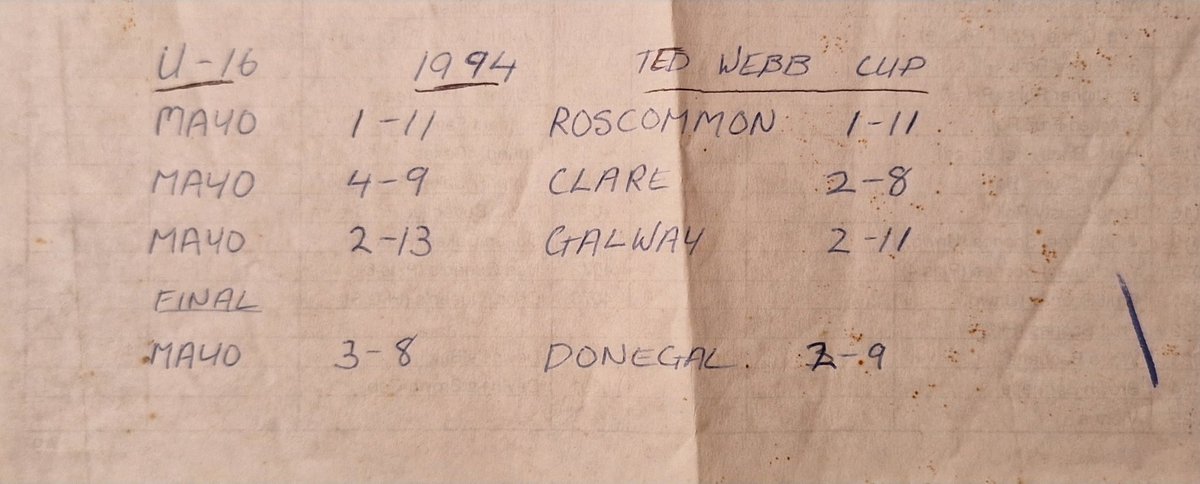 U-16 1994 TED WEBB CUP
MAYO 1-11 ROSCOMMON 1-11
MAYO 4-9 CLARE 2-8
MAYO 2-13 GALWAY 2-11
FINAL
MAYO 3-8 DONEGAL. 2-9